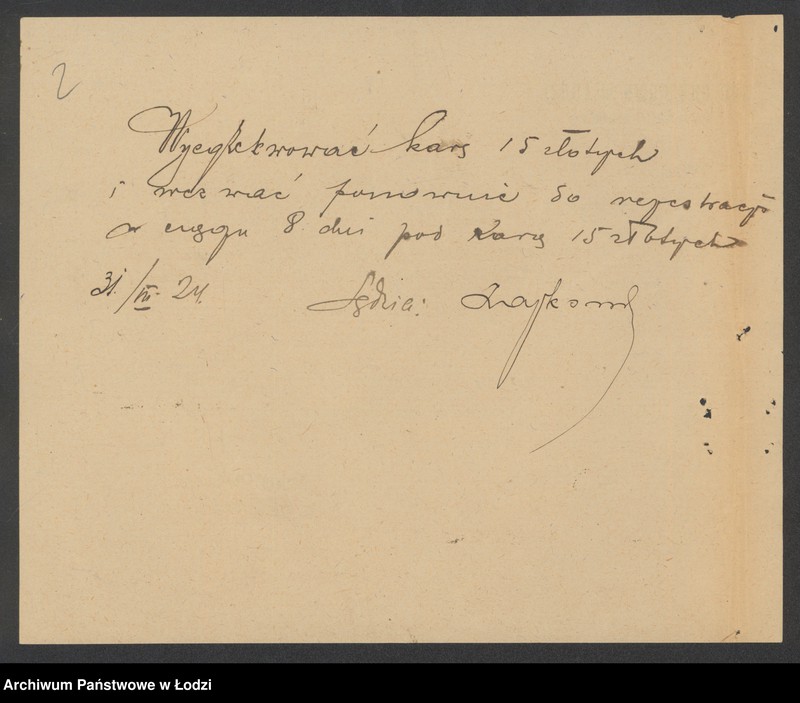 2
Wyegzekwować karę 15 złotych
i wezwać ponownie do rejestracji
w ciągu 8 dni pod karą 15 złotych
31/III. 24. Sędzia:
Archiwum Państwowe w Łodzi